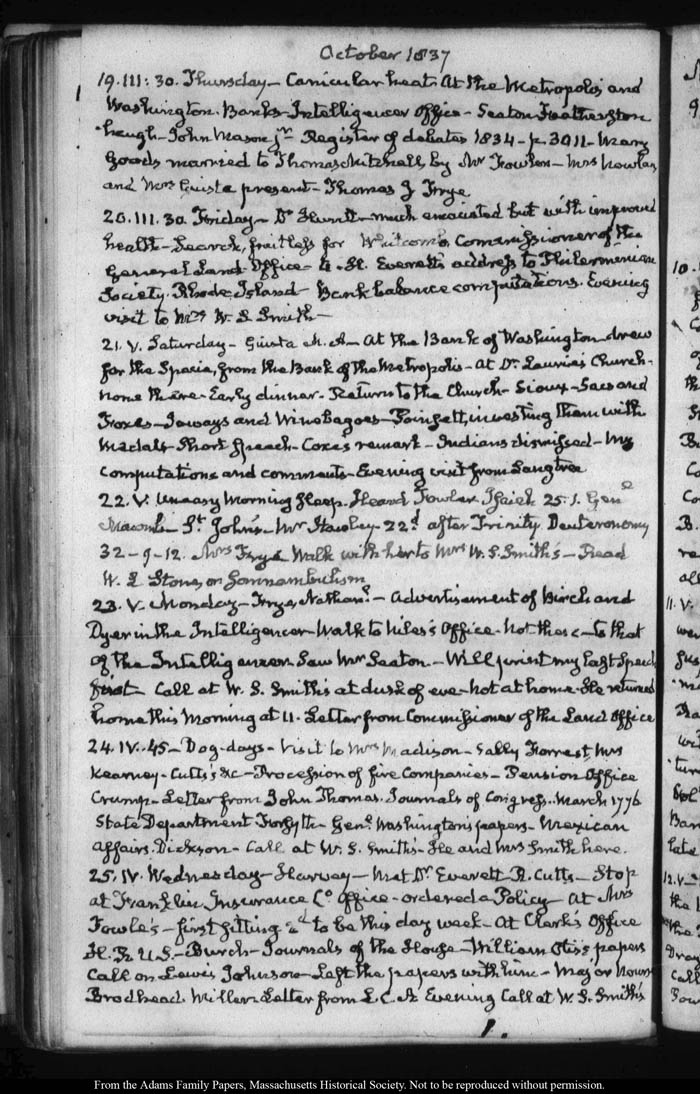 October 1837
19. III: 30. Thursday – Canicular heat. At the Metropolis and
Washington. Banks – Intelligencer Office – Seaton Featherston
haugh – John Mason jr. Register of debates 1834 – p. 3011 – Mary
Goods married to Thomas Mitchell by Mr Fowler – Mrs Nowlan
and Mrs Giusta present – Thomas J Frye
20. III. 30. Friday – Dr Huntt – much emaciated but with improved
health – Search, fruitless for Whitcomb Commissioner of the
General Land Office – A. H. Everett's address to Philermenian
Society. Rhode Island – Bank balance computations. Evening
visit to Mrs W. S. Smith –
21. V. Saturday – Giusta M. A – At the Bank of Washington drew
for the Specie, from the Bank of the Metropolis – At Dr. Laurie's Church –
none there – Early dinner – Return to the Church – Sioux – Sacs and
Foxes – Ioways and Winobagoes – Poinsett, investing them with
Medals – Short Speech – Coxe's remark – Indians dismissed – My
computations and comments – Evening visit from Langtree
22. V. Uneasy Morning Sleep. Heard Fowler Isaiah 25. 1. Genl
Macomb – St. John's – Mr Hawley – 22d after Trinity. Deuteronomy
32 – 9 – 12. Mrs Frye Walk with her to Mrs W. S. Smith's – Read
W. L Stone, on Somnambulism
23. V. Monday – Frye, Nathanl. – Advertisement of Birch and
Dyer in the Intelligencer – Walk to Niles's Office. Not there – to that
of the Intelligencer. Saw Mr Seaton. – Will print my last Speech
first Call at W. S. Smith's at dusk of eve – not at home. He returned
home this Morning at 11. – Letter from Commissioner of the Land Office
24. IV. 45 – Dog-days – Visit to Mrs Madison – Sally Forrest, Mrs
Kearney – Cutts's &c – Procession of fire Companies – Pension Office
Crump – Letter from John Thomas. Journals of Congress. March 1776
State Department Forsyth – Genl. Washington's papers – Mexican
affairs. Dickson – Call at W. S. Smith's – He and Mrs Smith here.
25. IV. Wednesday – Harvey – Met Dr Everett – R. Cutts – Stop
at Franklin Insurance Co. Office – ordered a Policy – At Mrs
Fowle's – first sitting 2d to be this day week – At Clark's Office
H. R U. S. – Burch – Journals of the House – William Otis's papers
Call on Lewis Johnson – Left the papers with him – Major
Brodhead. Miller. Letter from L. C. A. Evening Call at W. S. Smith's
1.
From the Adams Family Papers, Massachusetts Historical Society. Not to be reproduced without permission.